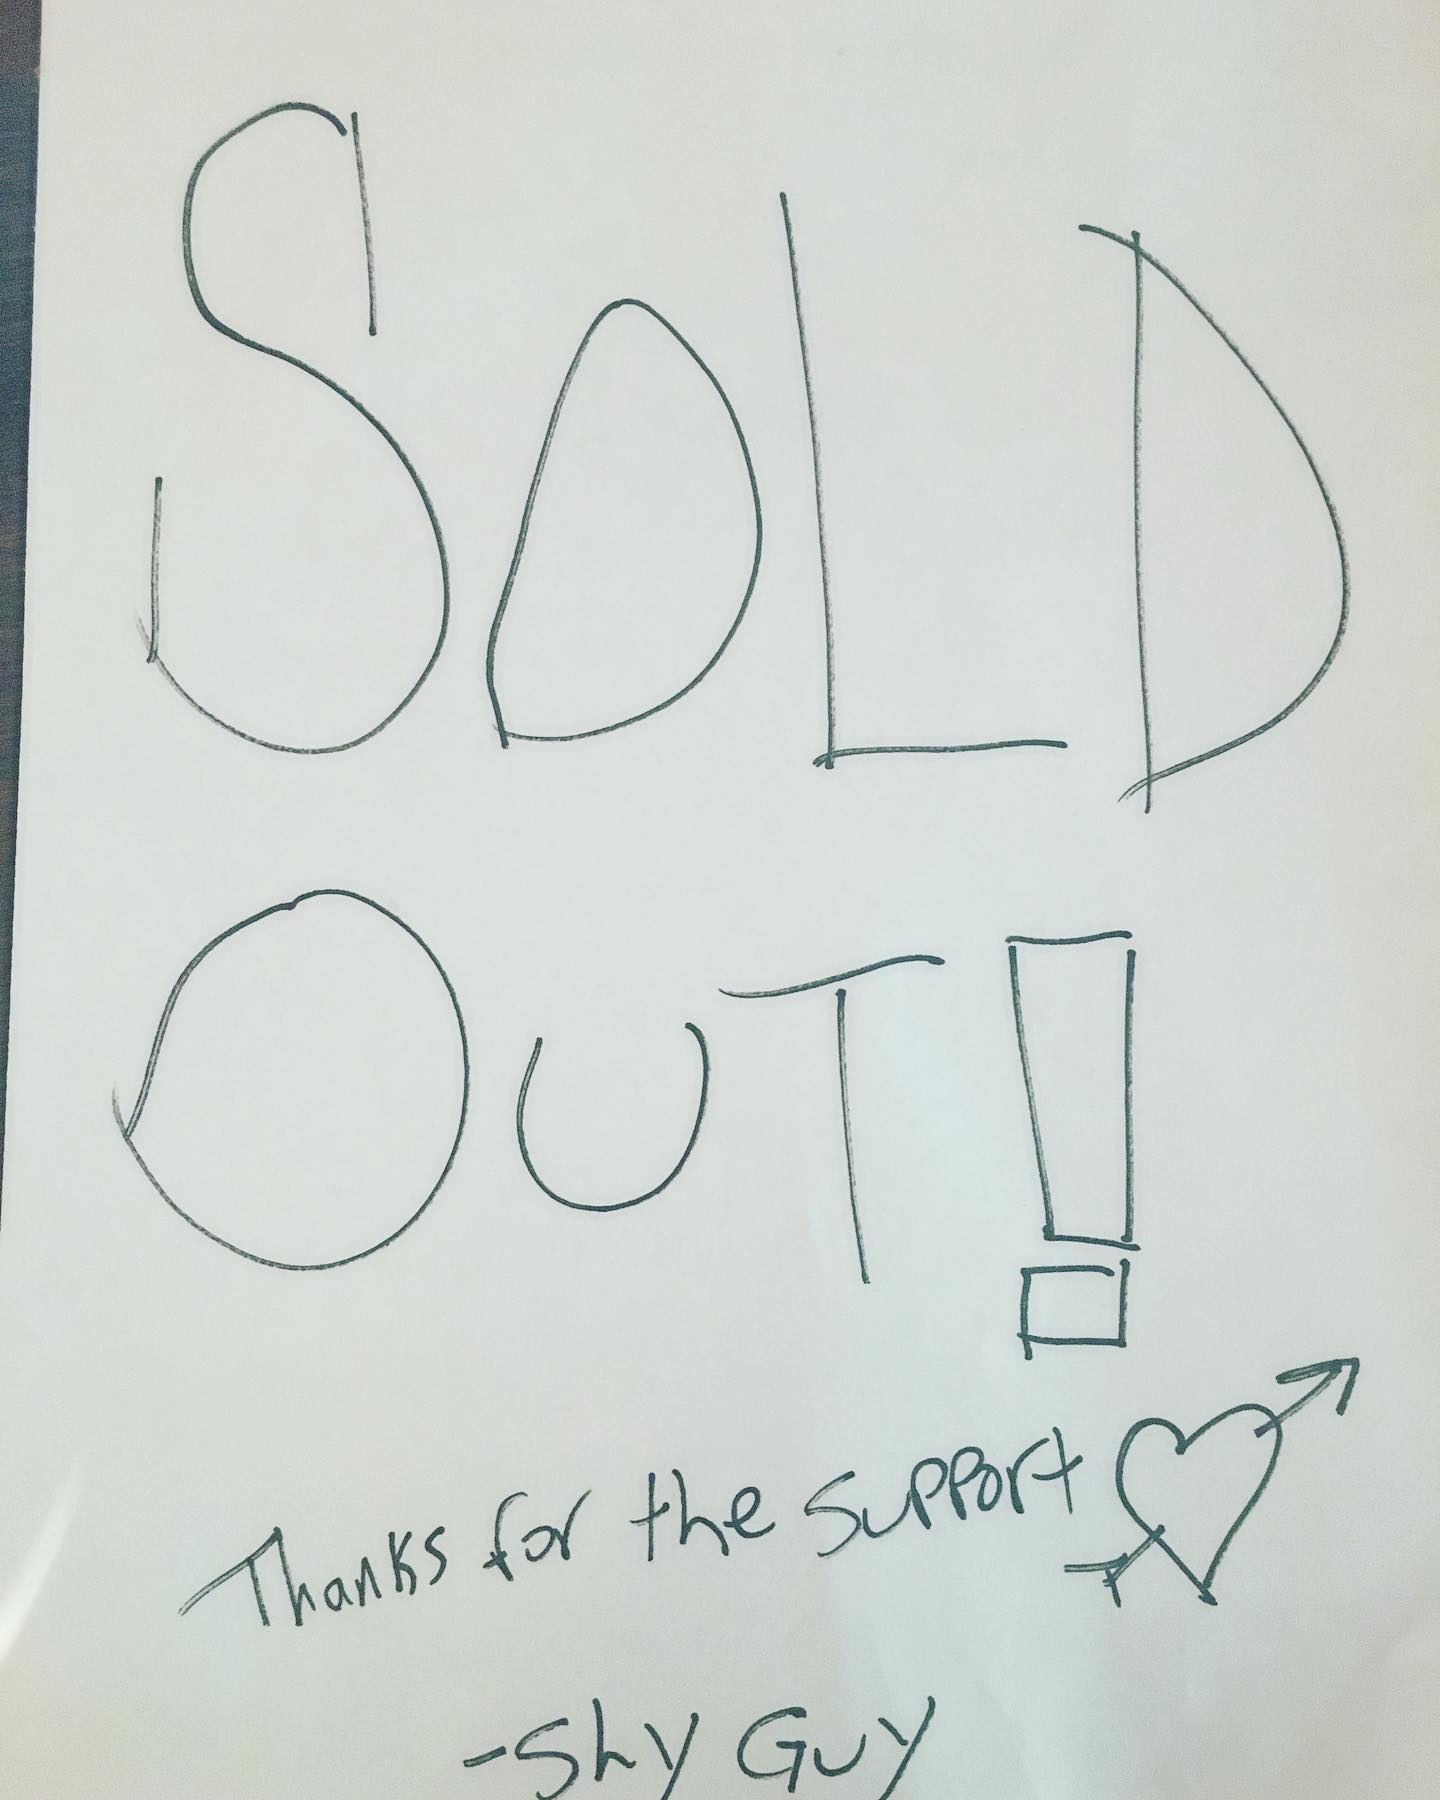 SOLD
OUT!
Thanks for the support
-Shy Guy